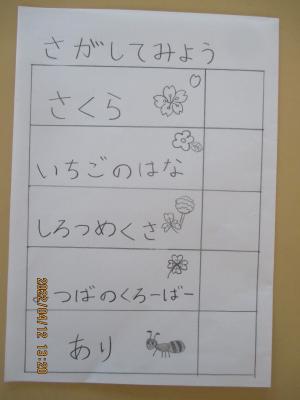 さがしてみよう
さくら
いちごのはな
しろつめくさ
つばのくろーばー
あり
2022/04/12 13:20